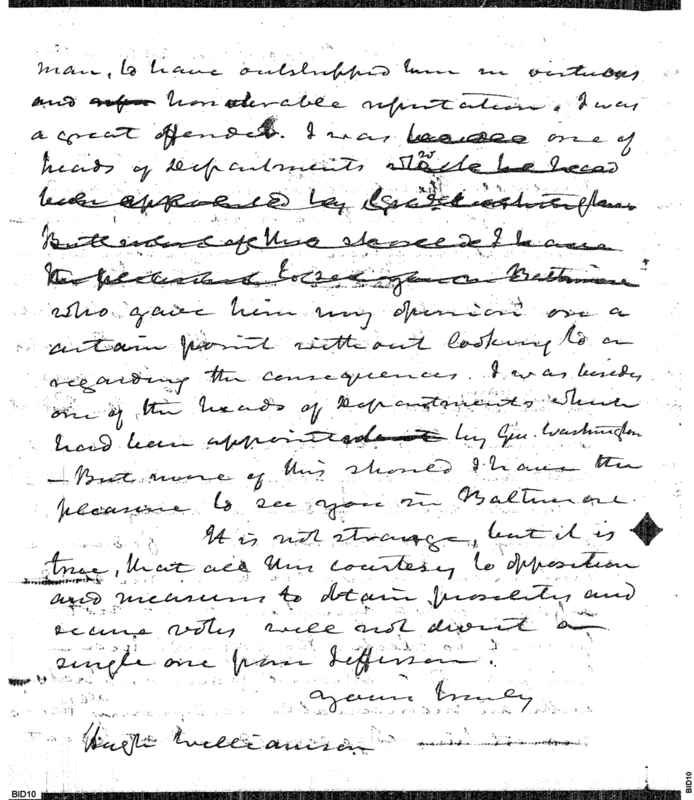 man, to have outstripped him in virtuous
and honorable reputation. I was
a great offender. I was one of
heads of Departments who had
been appointed by Genl. Washington
But more of this should I have
the pleasure to see you in Baltimore
who gave him my opinion on a
certain point without looking to or
regarding the consequences. I was besides
one of the heads of Departments which
had been appointed by Gen. Washington
— But more of this should I have the
pleasure to see you in Baltimore.
It is not strange, but it is
true, that all this courtesy to opposition
and measures to obtain proselites and
secure votes will not divert a
single one from Jefferson.
Yours truly
Hugh Williamson
BID10
BID10